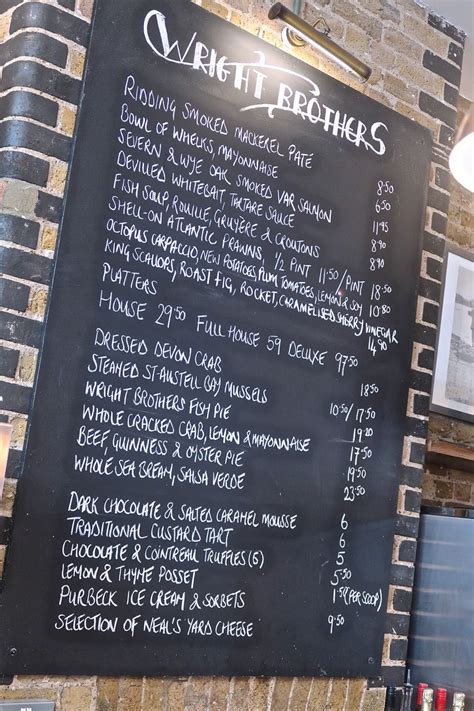 WRIGHT BROTHERS
RIDDING SMOKED MACKEREL PATÉ 8.50
BOWL OF WHELKS, MAYONNAISE 6.50
SEVERN & WYE OAK SMOKED VAR SALMON 11.95
DEVILLED WHITEBAIT, TARTARE SAUCE 8.90
FISH SOUP, ROUILLE, GRUYÈRE & CROUTONS 8.90
SHELL-ON ATLANTIC PRAWNS, 1/2 PINT 11.50/PINT 18.50
OCTOPUS CARPACCIO, NEW POTATOES, PLUM TOMATOES, LEMON & SOY 10.80
KING SCALLOPS, ROAST FIG, ROCKET, CARAMELISED SHERRY VINEGAR 14.90
PLATTERS
HOUSE 29.50 FULL HOUSE 59 DELUXE 97.50
DRESSED DEVON CRAB 18.50
STEAMED ST. AUSTELL BAY MUSSELS 10.50/17.50
WRIGHT BROTHERS FISH PIE 19.20
WHOLE CRACKED CRAB, LEMON & MAYONNAISE 17.50
BEEF, GUINNESS & OYSTER PIE 19.50
WHOLE SEA BREAM, SALSA VERDE 23.50
DARK CHOCOLATE & SALTED CARAMEL MOUSSE 6
TRADITIONAL CUSTARD TART 6
CHOCOLATE & COINTREAU TRUFFLES (5) 5
LEMON & THYME POSSET 5.50
PURBECK ICE CREAM & SORBETS 1.50 (PER SCOOP)
SELECTION OF NEAL'S YARD CHEESE 9.50